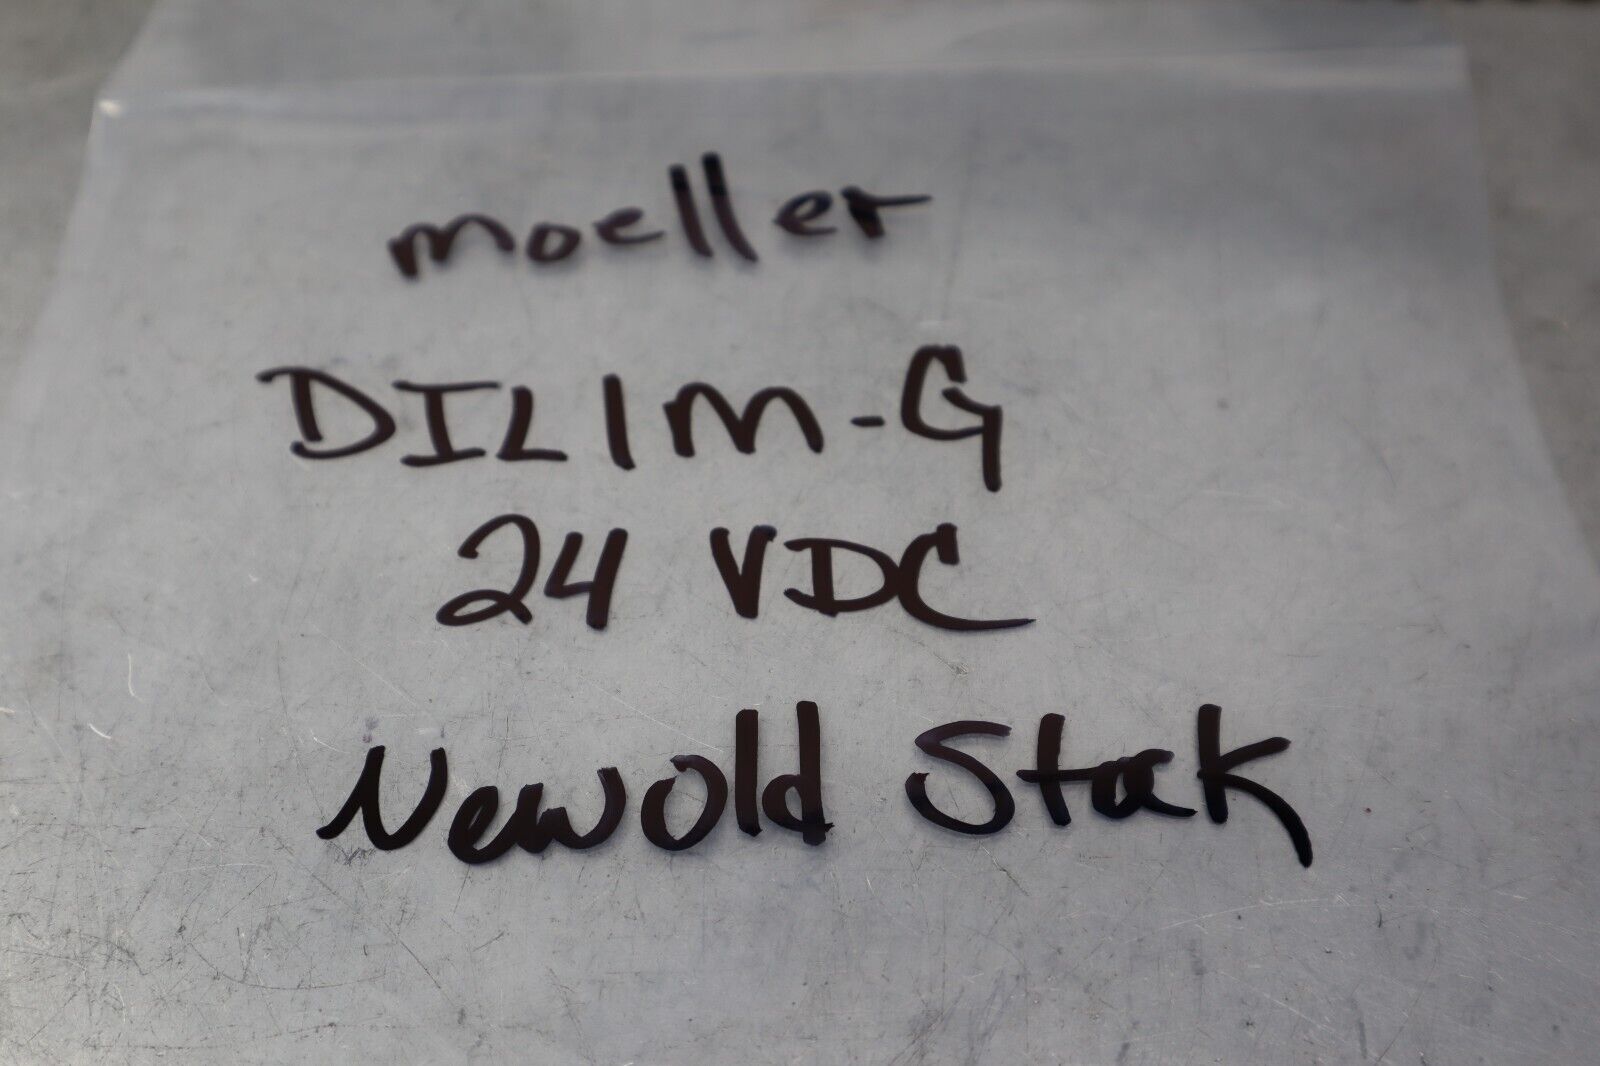 moeller
DIL1M-G
24 VDC
New old Stock